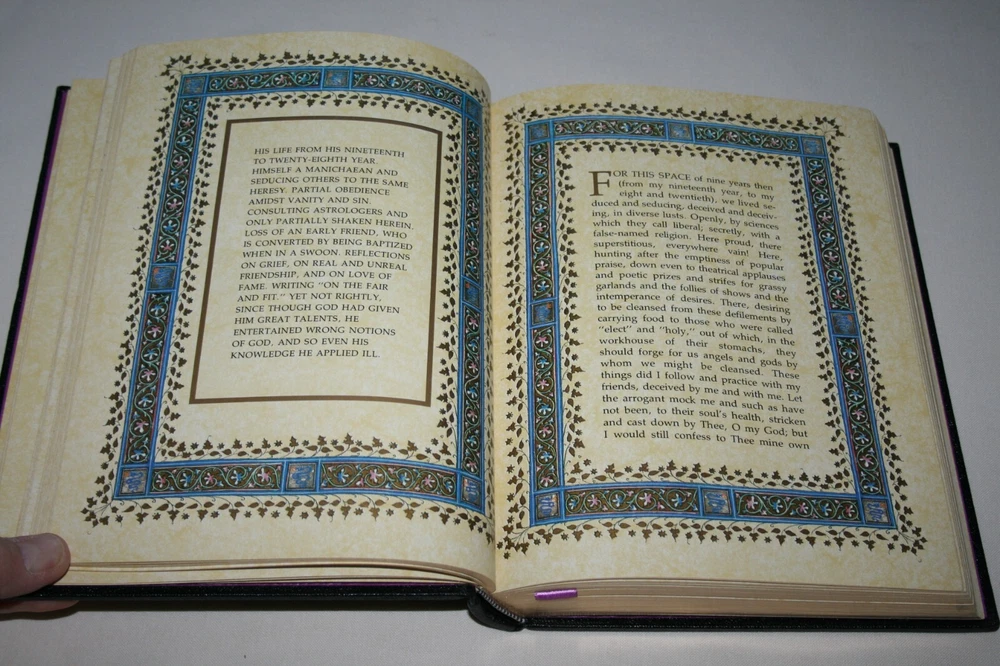 HIS LIFE FROM HIS NINETEENTH
TO TWENTY-EIGHTH YEAR.
HIMSELF A MANICHAEAN AND
SEDUCING OTHERS TO THE SAME
HERESY. PARTIAL OBEDIENCE
AMIDST VANITY AND SIN.
CONSULTING ASTROLOGERS AND
ONLY PARTIALLY SHAKEN HEREIN.
LOSS OF AN EARLY FRIEND, WHO
IS CONVERTED BY BEING BAPTIZED
WHEN IN A SWOON. REFLECTIONS
ON GRIEF, ON REAL AND UNREAL
FRIENDSHIP, AND ON LOVE OF
FAME. WRITING "ON THE FAIR
AND FIT." YET NOT RIGHTLY,
SINCE THOUGH GOD HAD GIVEN
HIM GREAT TALENTS, HE
ENTERTAINED WRONG NOTIONS
OF GOD, AND SO EVEN HIS
KNOWLEDGE HE APPLIED ILL.
FOR THIS SPACE of nine years then
(from my nineteenth year, to my
eight and twentieth), we lived se-
duced and seducing, deceived and deceiv-
ing, in diverse lusts. Openly, by sciences
which they call liberal; secretly, with a
false-named religion. Here proud, there
superstitious, everywhere vain! Here,
hunting after the emptiness of popular
praise, down even to theatrical applauses
and poetic prizes and strifes for grassy
garlands and the follies of shows and the
intemperance of desires. There, desiring
to be cleansed from these defilements by
carrying food to those who were called
"elect" and "holy," out of which, in the
workhouse of their stomachs, they
should forge for us angels and gods by
whom we might be cleansed. These
things did I follow and practice with my
friends, deceived by me and with me. Let
the arrogant mock me and such as have
not been, to their soul's health, stricken
and cast down by Thee, O my God; but
I would still confess to Thee mine own